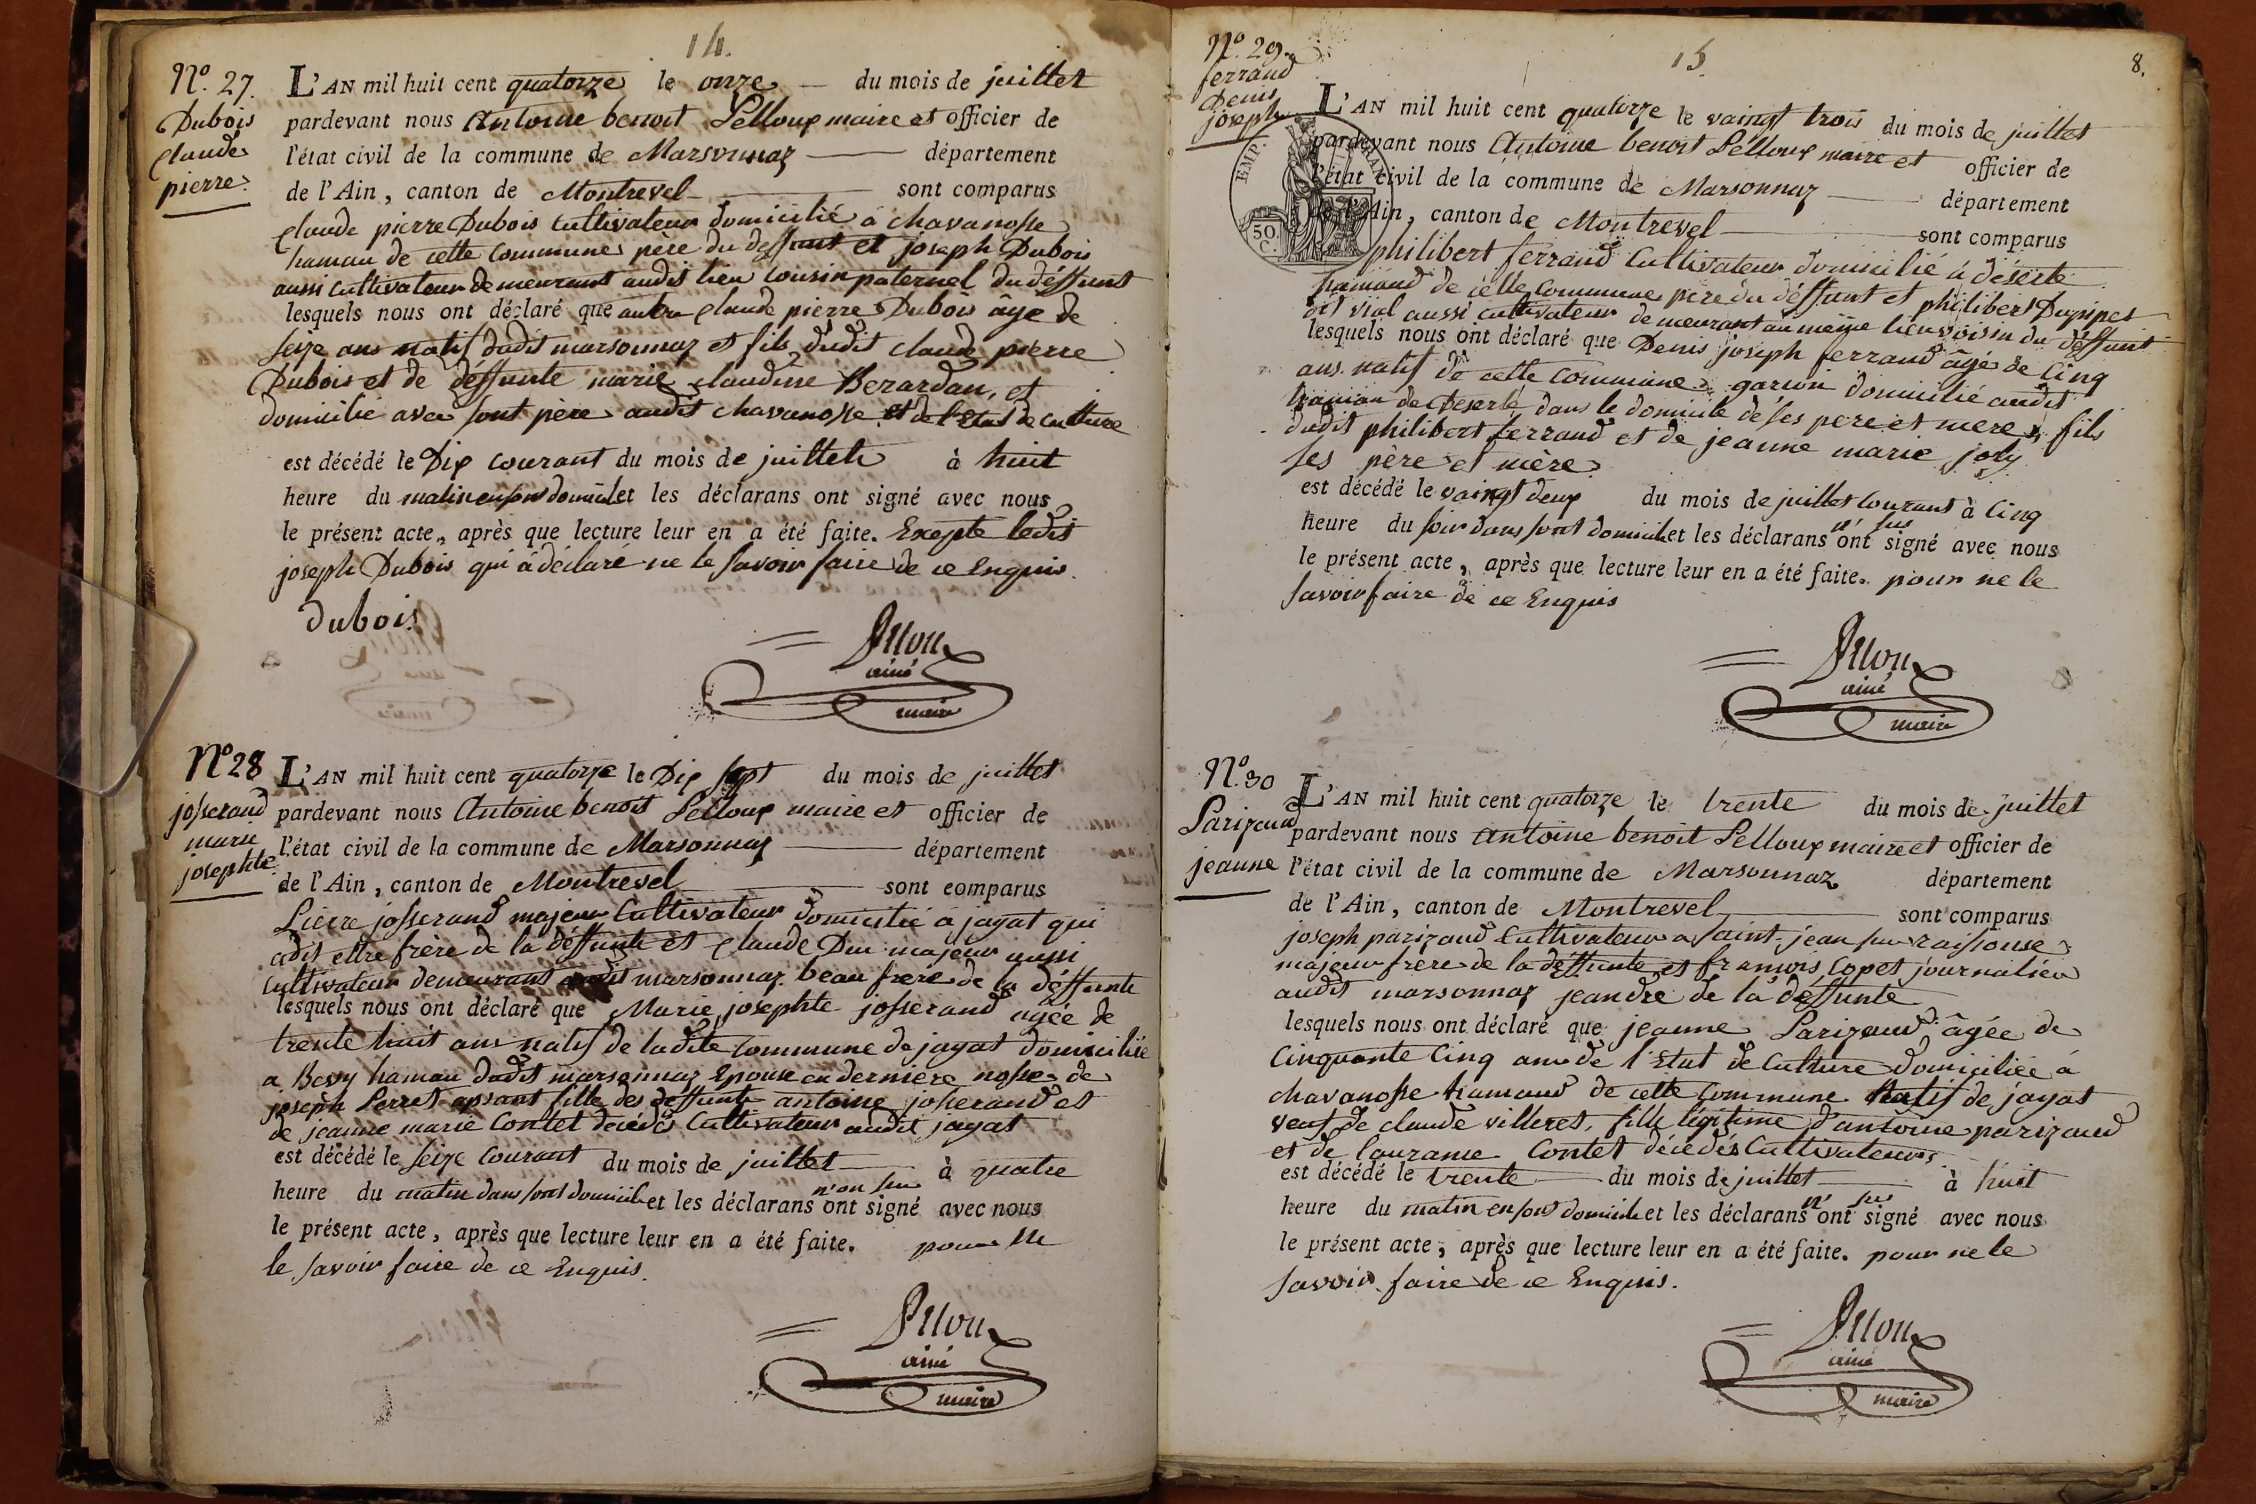 14.
N.º 27.
Dubois
claude
pierre.
L'AN mil huit cent quatorze le onze du mois de juillet
pardevant nous Antoine benoit Pelloux maire et officier de
l'état civil de la commune de Marsonnaz département
de l'Ain, canton de Montrevel sont comparus
claude pierre Dubois cultivateur domicilié à chavanosse
hamau de cette commune père du deffunt et joseph Dubois
aussi cultivateur demeurant audit lieu cousin paternel du déffunt
lesquels nous ont déclaré que autre claude pierre Dubois âge de
seize ans natif dudit marsonnaz et fils dudit claude pierre
Dubois et de déffunte marie claudine Berardan, et
domicilié avec sont père audit chavanosse et de l'état de culture
est décédé le Dix courant du mois de juillet à huit
heure du matin en son domicile et les déclarans ont signé avec nous
le présent acte, après que lecture leur en a été faite. Excepte ledit
joseph Dubois qui à déclaré ne le savoir faire de ce Enquis.
dubois
Pelloux
ainé
maire
Nº 28
josserand
marie
josephte
L'AN mil huit cent quatorze le Dix sept du mois de juillet
pardevant nous Antoine benoit Pelloux maire et officier de
l'état civil de la commune de Marsonnaz département
de l'Ain, canton de Montrevel sont comparus
Pierre josserand majeur Cultivateur domicilié à jayat qui
a dit ettre frère de la déffunte et claude Duc majeur aussi
cultivateur demeurant audit marsonnaz beau frere de la déffunte
lesquels nous ont déclaré que Marie josephte josserand agée de
trente huit ans natif de ladite commune de jayat domiciliée
a Bevy hamau dudit marsonnaz Epouse en derniere nosse de
joseph Perret absant fille des deffunts antoine josserand et
de jeanne marie Contet décédés Cultivateur audit jayat
est décédé le seize courant du mois de juillet à quatre
heure du matin dans sont domicile et les déclarans n'on su ont signé avec nous
le présent acte, après que lecture leur en a été faite. pour ne
le savoir faire de ce Enquis.
Pelloux
ainé
maire
15.
8.
N.º 29.
ferraud
Denis
joseph
EMP. FRAN.
50 C.
L'AN mil huit cent quatorze le vaingt trois du mois de juillet
pardevant nous Antoine benoit Pelloux maire et officier de
l'état civil de la commune de Marsonnaz département
de l'Ain, canton de Montrevel sont comparus
philibert ferraud Cultivateur domicilié à déserte
hamaud de cette commune père du déffunt et philibert Dupipet
dit vial aussi cultivateur demeurant au même lieu voisin du deffunt
lesquels nous ont déclaré que Denis joseph ferraud âgé de Cinq
ans natif de cette commune garson domicilié audit
hamau de Deserte dans le domicile de ses pere et mere, fils
dudit philibert ferraud et de jeanne marie joly
ses père et mère
est décédé le vaingt deux du mois de juillet courant à Cinq
heure du soir dans sont domicile et les déclarans n' ont su signé avec nous
le présent acte, après que lecture leur en a été faite. pour ne le
savoir faire de ce Enquis
Pelloux
ainé
maire
N.º 30
Parizaud
jeanne
L'AN mil huit cent quatorze le trente du mois de juillet
pardevant nous antoine benoit Pelloux maire et officier de
l'état civil de la commune de Marsonnaz département
de l'Ain, canton de Montrevel sont comparus
joseph parizaud Cultivateur a saint jean sur raissouse
majeur frere de la déffunte et francois Copet journalier
audit marsonnaz jeandre de la deffunte
lesquels nous ont déclaré que jeanne Parizaud âgée de
Cinquante Cinq ans de l'Etat de Culture domiciliée à
chavanosse hamaud de cette commune Natif de jayat
veuf de claude villeret, fille légitime d'antoine parizaud
et de laurance Contet décédés Cultivateurs
est décédé le trente du mois de juillet à huit
heure du matin en son domicile et les déclarans n' ont su signé avec nous
le présent acte, après que lecture leur en a été faite. pour ne le
savoir faire de ce Enquis.
Pelloux
ainé
maire